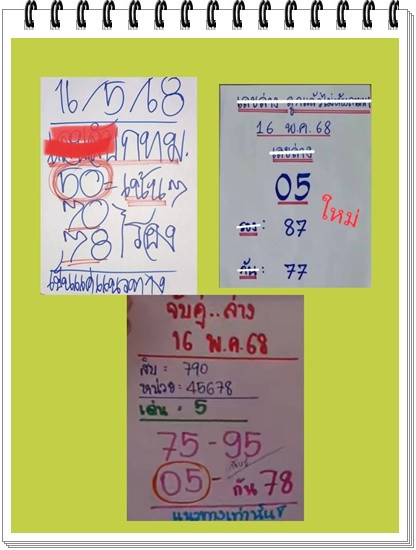 16/5/68
กทม.
50 = เน้นๆ
70
78 ไร้สอง
เป็นแค่แนวทาง
16 พ.ค. 68
เลขล่าง
05
ใหม่
รอง : 87
กัน : 77
จับคู่..ล่าง
16 พ.ค.68
สิบ : 790
หน่วย : 45678
เด่น : 5
75 - 95
05 - กัน 78
แนวทางเท่านั้น